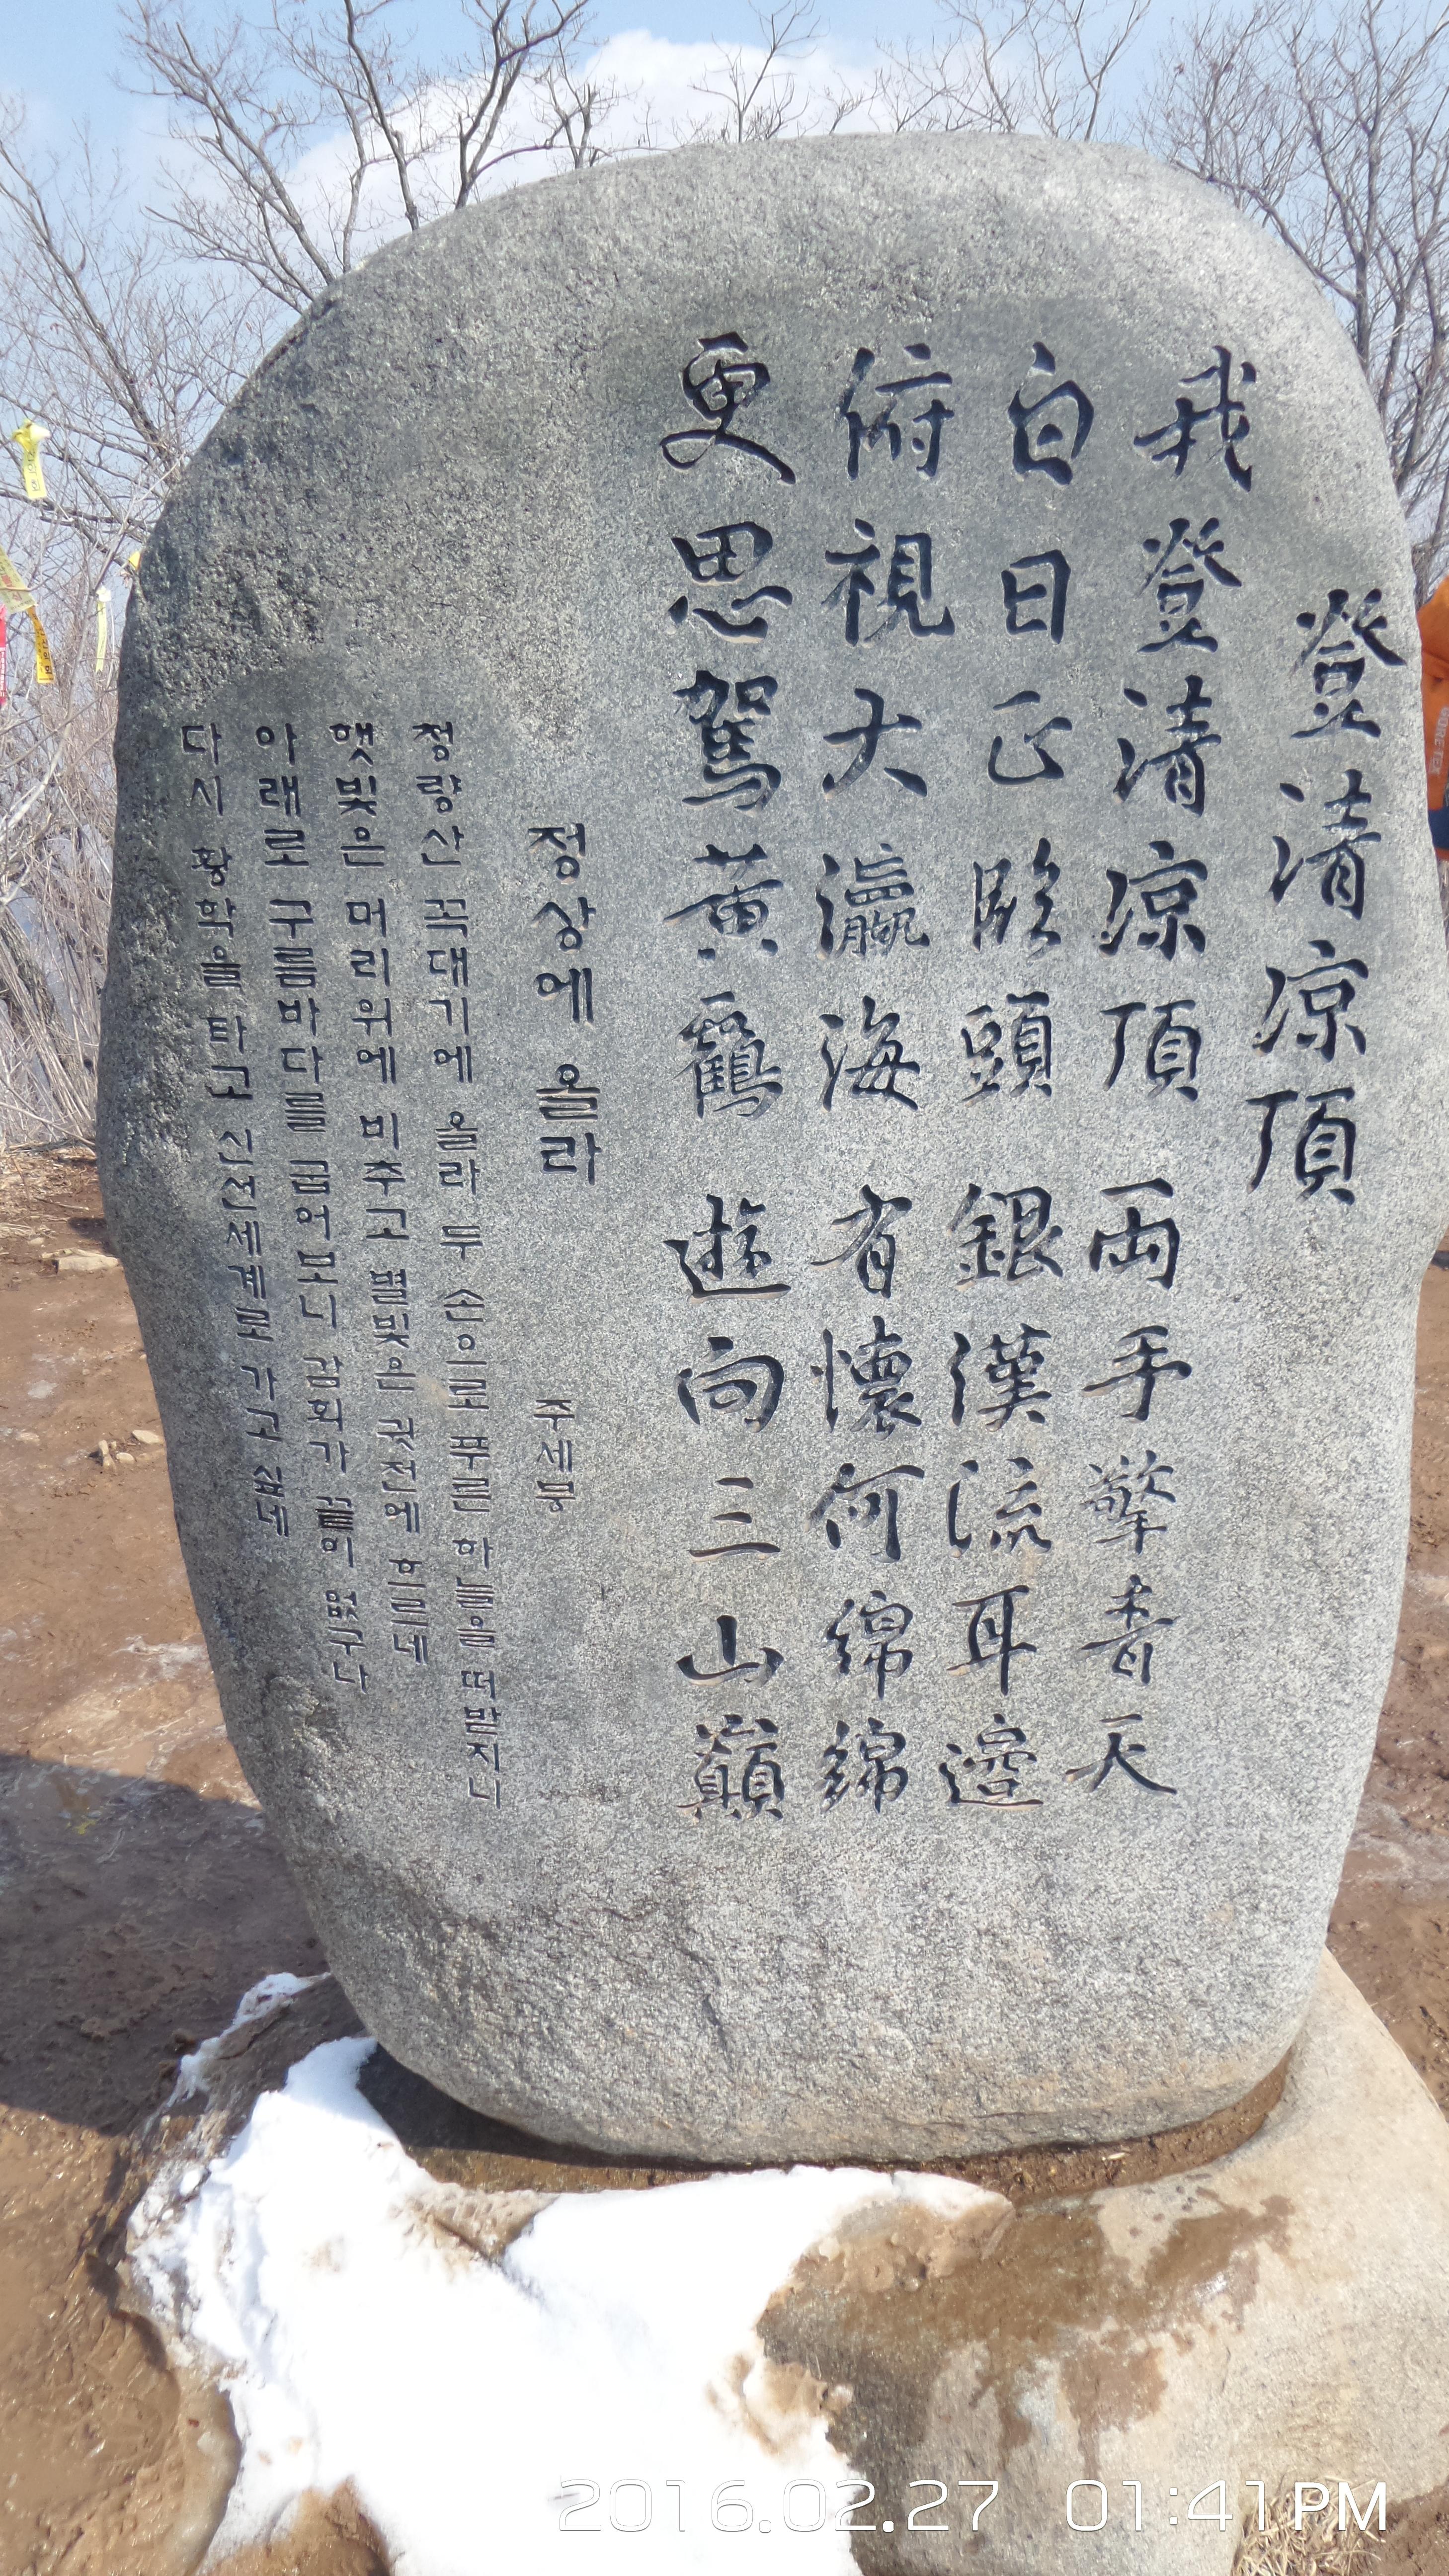 登清凉頂
我登清凉頂 両手擎青天
白日正臨頭 銀漢流耳邊
俯視大瀛海 有懷何綿綿
更思駕黄鶴 遊向三山巓
정상에 올라 주세붕
청량산 꼭대기에 올라 두 손으로 푸른 하늘을 떠받치니
햇빛은 머리위에 비추고 별빛은 귓전에 흐르네
아래로 구름바다를 굽어보니 감회가 끝이 없구나
다시 황학을 타고 신선세계로 가고 싶네
GORE TEX
2016.02.27 01:41PM